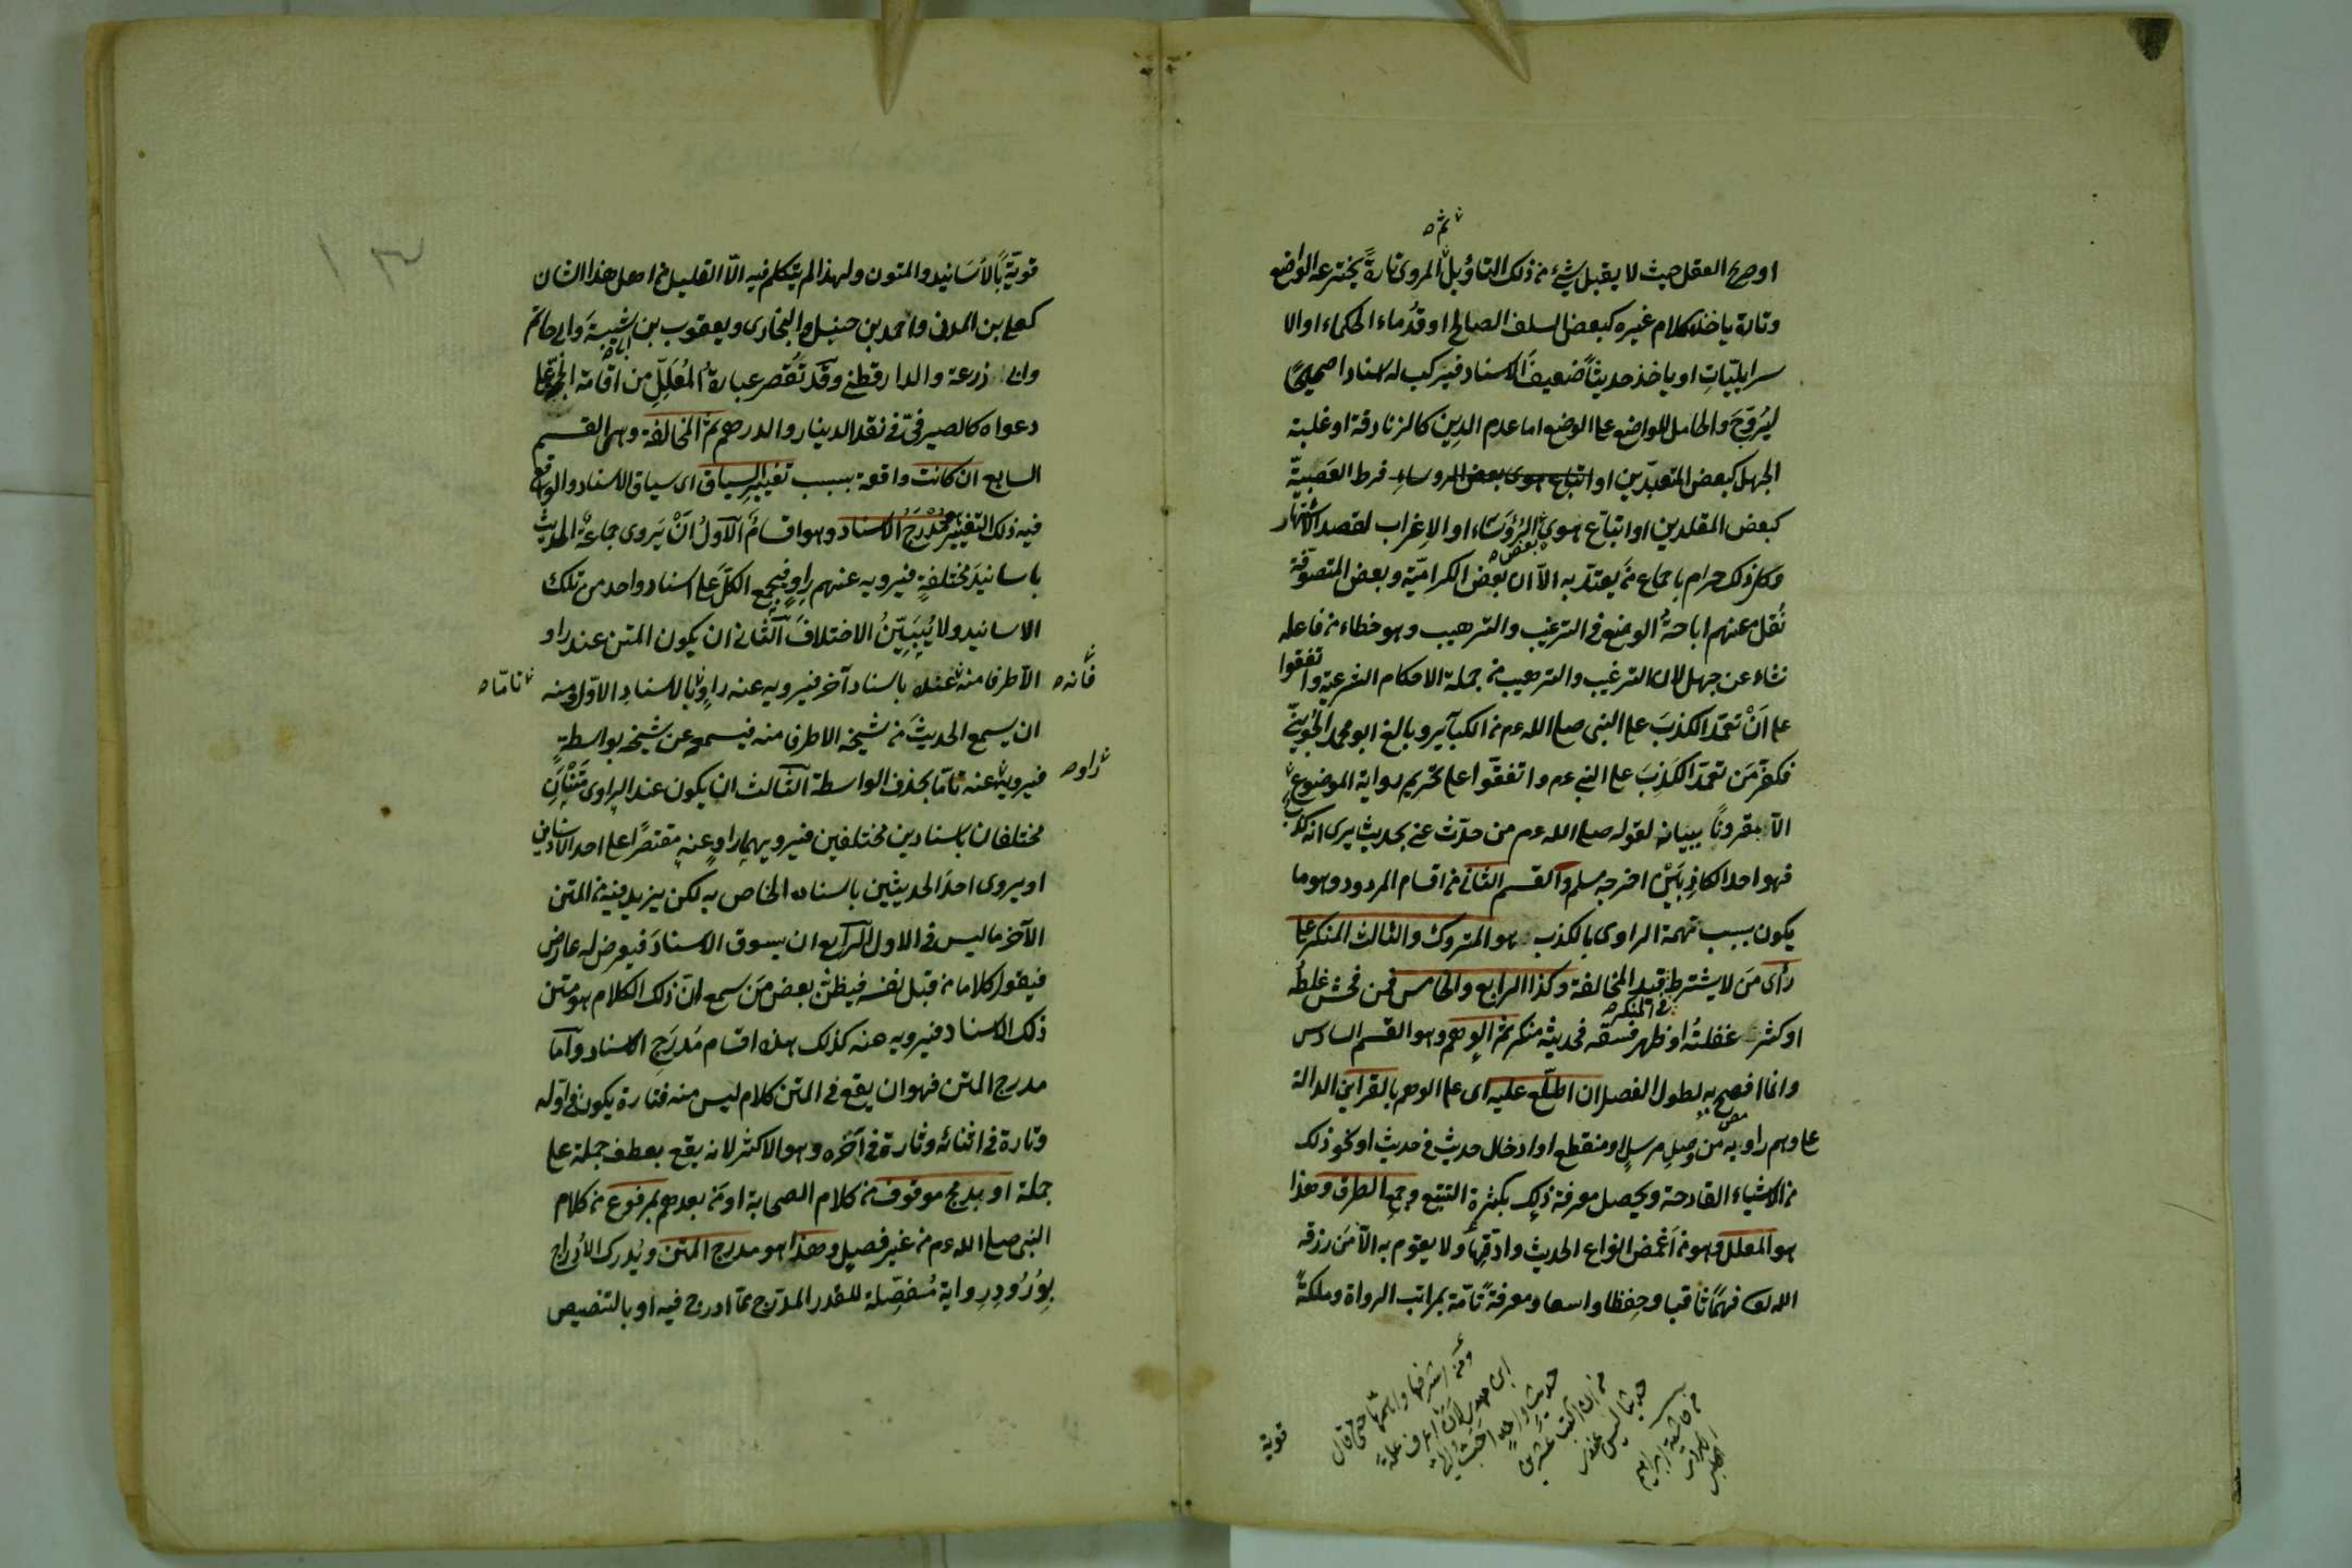 ثم
او صريح العقل حيث لا يقبل شئ من ذلك التاويل المروى تارة يخترعه الواضع
وتارة ياخذ كلام غيره كبعض السلف الصالح او قدماء الحكماء او الا
سرايليات او ياخذ حديثا ضعيف الاسناد فيركب له اسنادا صحيحا
ليروج والحامل للواضع على الوضع اما عدم الدين كالزنادقة او غلبة
الجهل كبعض المتعبدين او اتباع هوى بعض الروساء فرط العصبية
كبعض المقلدين او اتباع هوى الرؤساء او الاغراب لقصد الاشتهار
بعض
وكل ذلك حرام باجماع من يعتد به الا ان بعض الكرامية وبعض المتصوفة
نقل عنهم اباحة الوضع فى الترغيب والترهيب وهو خطاء من فاعله
نشاء عن جهل لان الترغيب والترهيب من جملة الاحكام الشرعية واتفقوا
على ان تعمد الكذب على النبى صلى الله عم من الكبآئر وبالغ ابو محمد الجوينى
فكفر من تعمد الكذب على النبى عم واتفقوا على تحريم رواية الموضوع
الا مقرونا ببيانه لقوله صلى الله عم من حدث عنى بحديث يرى انه كذب
فهو احد الكاذبين اخرجه مسلم والقسم الثانى من اقسام المردود وهو ما
يكون بسبب تهمة الراوى بالكذب هو المتروك والثالث المنكر على
رأى من لا يشترط قيد المخالفة وكذا الرابع والخامس فمن فحش غلطه
فى المنكر
او كثرت غفلته او ظهر فسقه فحديثه منكر ثم الوهم وهو القسم السادس
وانما افصح به لطول الفصل ان اطلع عليه اى على الوهم بالقراين الدالة
على وهم راويه من وصل مرسل او منقطع او ادخال حديث فى حديث او نحو ذلك
من الاشياء القادحة ويحصل معرفة ذلك بكثرة التتبع وجمع الطرق وهذا
هو المعلل وهو من اغمض انواع الحديث وادقها ولا يقوم به الا من رزقه
الله تعالى فهما ثاقبا وحفظا واسعا ومعرفة تامة بمراتب الرواة وملكة
ومن اشرفها واهمها حتى قال
ابن مهدى لان اعرف علة
حديث واحد احب الى
من ان اكتب عشرين
حديثا ليس عندى
من حاشية ابراهيم
قوية
١٣
قوية بالأسانيد والمتون ولهذا لم يتكلم فيه الا القليل من اهل هذا الشان
كعلى بن المدنى واحمد بن حنبل والبخارى ويعقوب بن شيبة وابى حاتم
وابى زرعة والدارقطنى وقد تقصر عبارة المعلل من اقامة الحجة على
دعواه كالصيرفى فى نقد الدينار والدرهم ثم المخالفة وهى القسم
السابع ان كانت واقعة بسبب تغيير السياق اى سياق الاسناد والواقع
فيه ذلك التغيير مدرج الاسناد وهو اقسام الآول ان يروى جماعة الحديث
باسانيد مختلفة فيرويه عنهم راو فيجمع الكل على اسناد واحد من تلك
الاسانيد ولا يبين الاختلاف الثانى ان يكون المتن عند راو
فأنه
الا طرفا منه عنده باسناد آخر فيرويه عنه راو بالاسناد الاول ومنه
تاما
ان يسمع الحديث من شيخه الا طرفا منه فيسمعه عن شيخه بواسطة
راو
فيرويه عنه تاما بحذف الواسطة الثالث ان يكون عند الراوى متنان
مختلفان باسنادين مختلفين فيرويهما راو عنه مقتصرا على احد الاسنادين
او يروى احد الحديثين باسناده الخاص به لكن يزيد فيه من المتن
الآخر ما ليس فى الاول الرابع ان يسوق الاسناد فيعرض له عارض
فيقول كلاما من قبل نفسه فيظن بعض من سمع ان ذلك الكلام هو متن
ذلك الاسناد فيرويه عنه كذلك هذه اقسام مدرج الاسناد واما
مدرج المتن فهو ان يقع فى المتن كلام ليس منه فتارة يكون فى اوله
وتارة فى اثنائه وتارة فى آخره وهو الاكثر لانه يقع بعطف جملة على
جملة او بدمج موقوف من كلام الصحابة او من بعدهم بمرفوع من كلام
النبى صلى الله عم من غير فصل وهذا هو مدرج المتن ويدرك الادراج
بورود رواية مفصلة للقدر المدرج مما ادرج فيه او بالتنصيص